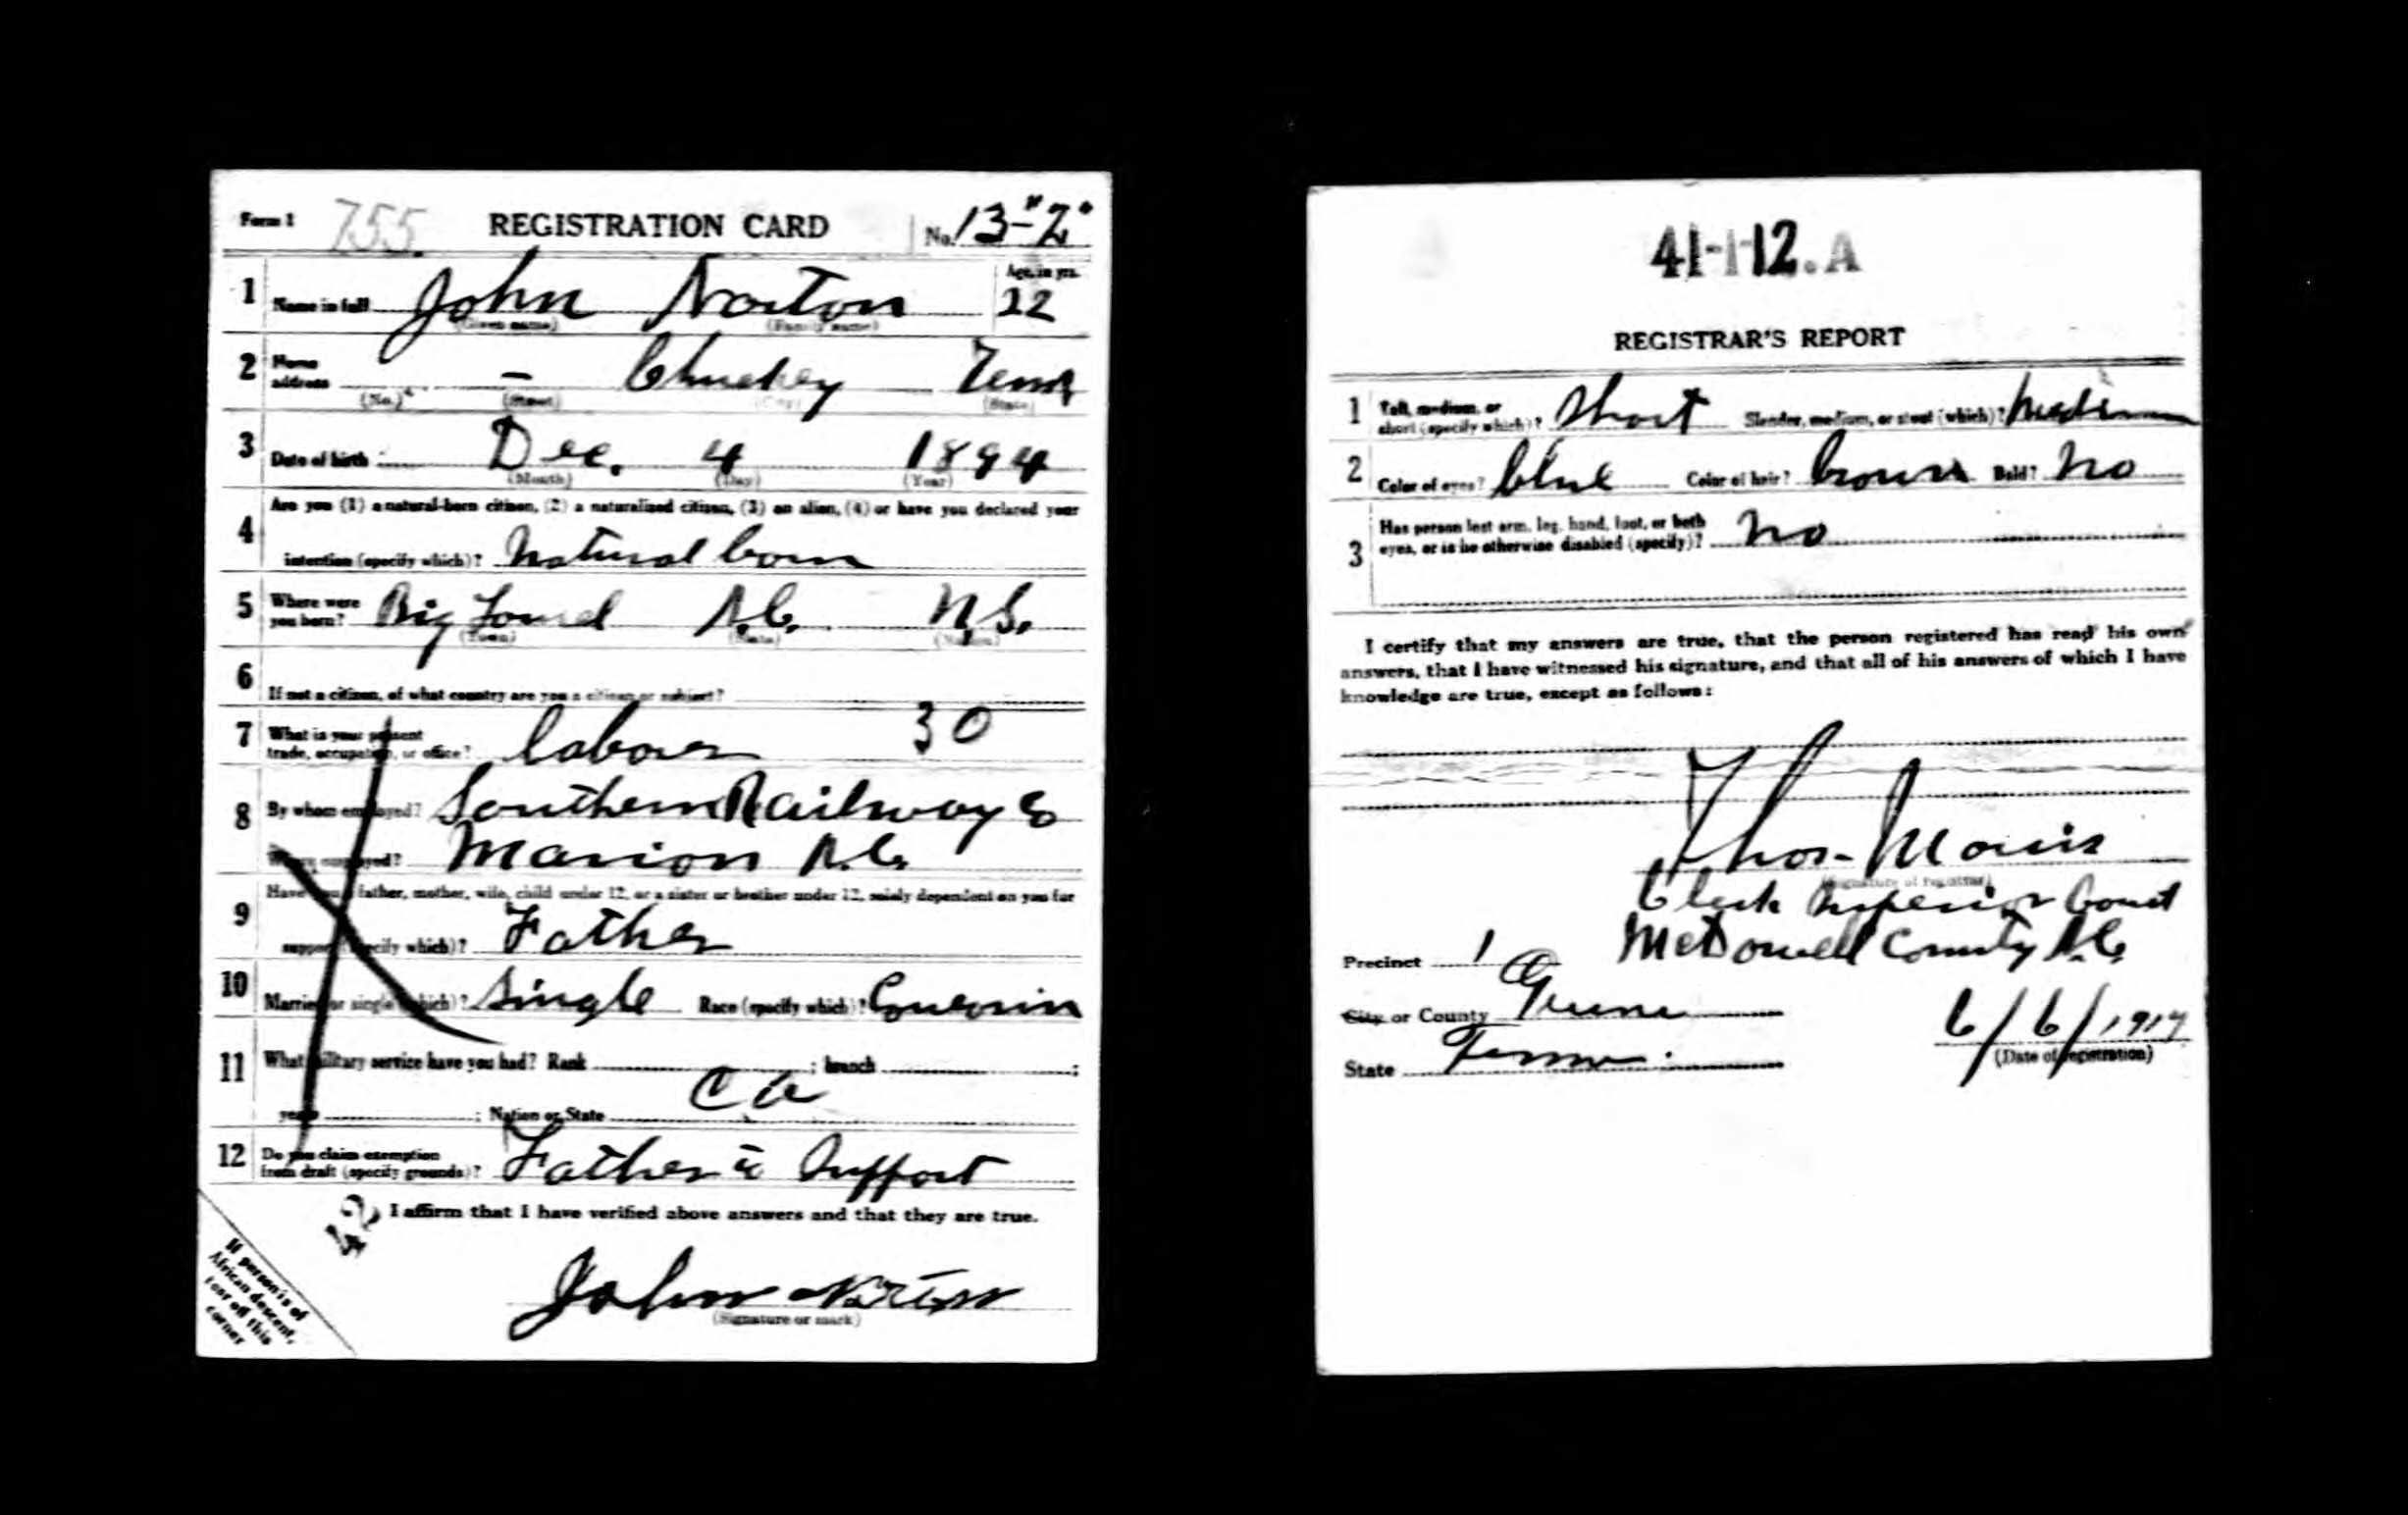 Form 1 755. REGISTRATION CARD No. 13-"2"
1 Name in full John Norton Age, in yrs. 22
(Given name) (Family name)
2 Home address — Chuckey Tenn
(No.) (Street) (City) (State)
3 Date of birth Dec. 4 1894
(Month) (Day) (Year)
4 Are you (1) a natural-born citizen, (2) a naturalized citizen, (3) an alien, (4) or have you declared your
intention (specify which)? Natural born
5 Where were you born? Big N.C.
(Town) (State) (Nation)
6 If not a citizen, of what country are you a citizen or subject?
7 What is your present trade, occupation, or office? labour 30
8 By whom employed? Southern Railway Co
Where employed? Marion N.C.
9 Have you a father, mother, wife, child under 12, or a sister or brother under 12, solely dependent on you for
support (specify which)? Father
10 Married or single (which)? Single Race (specify which)?
11 What military service have you had? Rank ; branch ;
years ; Nation or State
12 Do you claim exemption from draft (specify grounds)? Father Support
42 I affirm that I have verified above answers and that they are true.
John Norton
(Signature or mark)
If person is of
African descent,
tear off this
corner
41-1-12. A
REGISTRAR'S REPORT
1 Tall, medium, or short (specify which)? Short Slender, medium, or stout (which)? Medium
2 Color of eyes? blue Color of hair? brown Bald? No
3 Has person lost arm, leg, hand, foot, or both
eyes, or is he otherwise disabled (specify)? No
I certify that my answers are true, that the person registered has read his own
answers, that I have witnessed his signature, and that all of his answers of which I have
knowledge are true, except as follows:
Thos. Morris
(Signature of registrar)
Clerk Superior Court
McDowell County N.C.
Precinct 1
City or County Greene
State Tenn.
6/6/1917
(Date of registration)